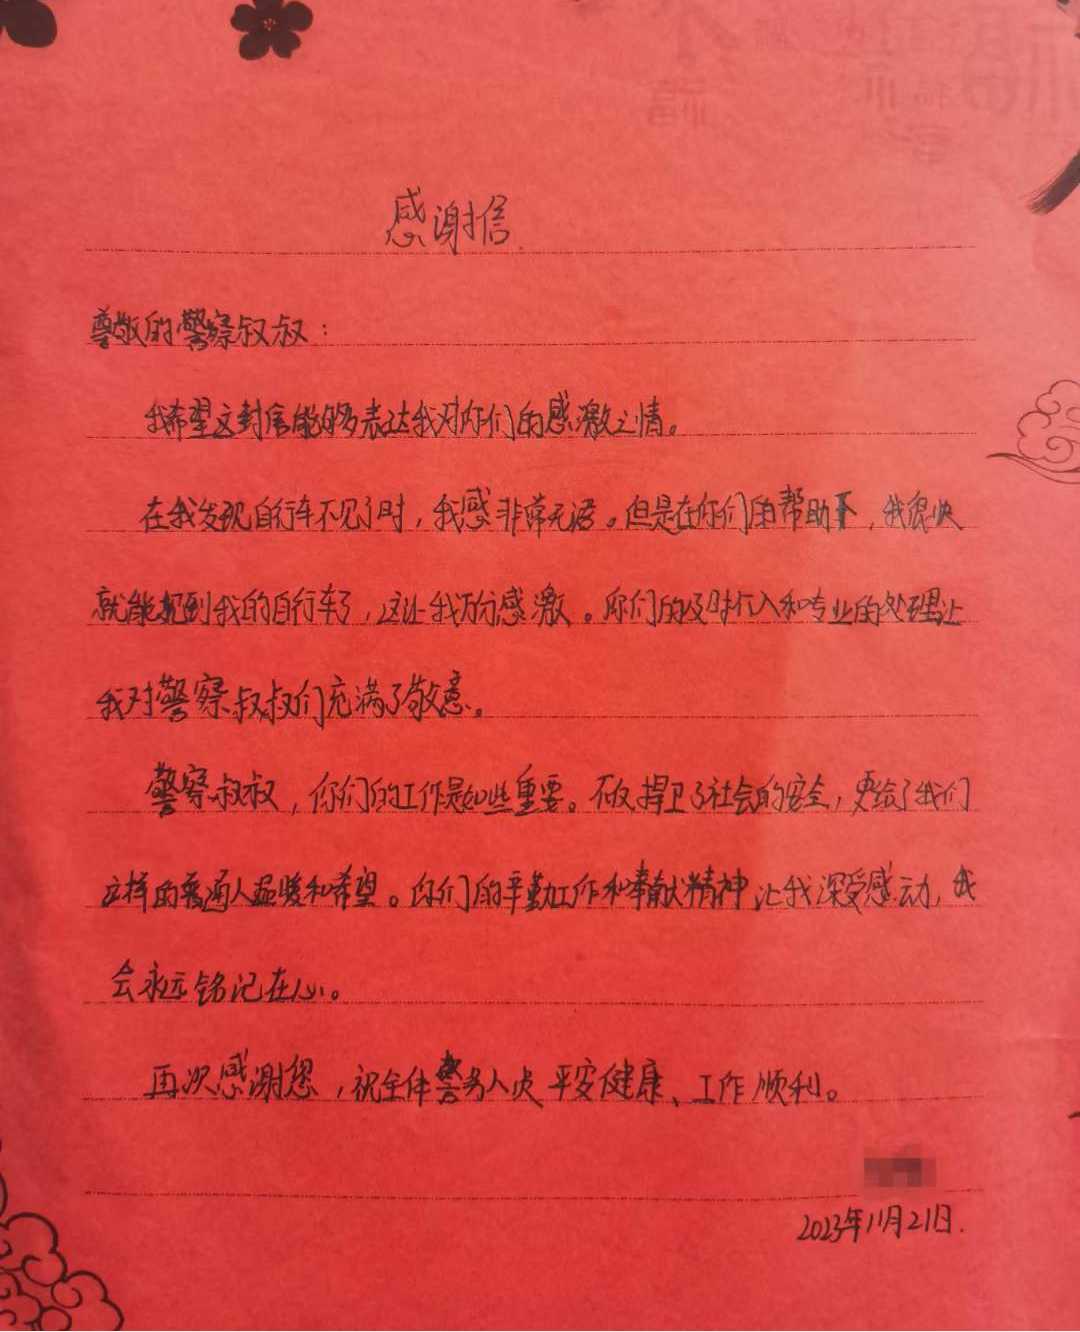 感谢信
尊敬的警察叔叔：
我希望这封信能够表达我对你们的感激之情。
在我发现自行车不见了时，我感非常无语。但是在你们的帮助下，我很快
就能把到我的自行车了，这让我万分感激。你们的及时介入和专业的处理让
我对警察叔叔们充满了敬意。
警察叔叔，你们的工作是如些重要。不仅捍卫了社会的安全，更给了我们
这样的普通人温暖和希望。你们的辛勤工作和奉献精神让我深受感动，我
会永远铭记在心。
再次感谢您，祝全体警务人员平安健康、工作顺利。
2023年11月21日.